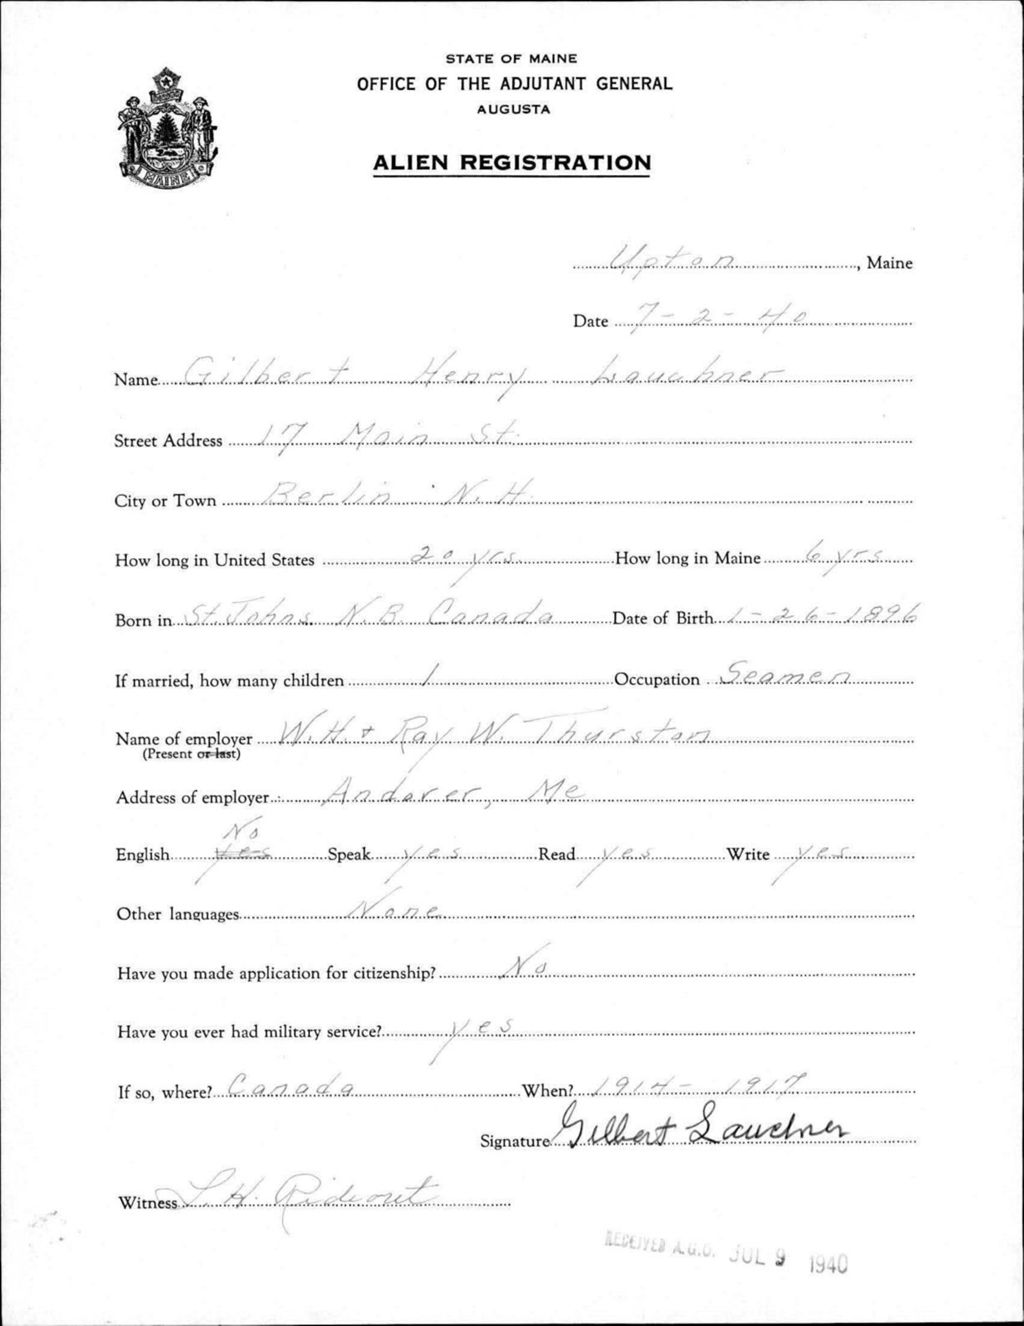 STATE OF MAINE
OFFICE OF THE ADJUTANT GENERAL
AUGUSTA
ALIEN REGISTRATION
MAINE
Upton, Maine
Date 7-2-40
Name Gilbert Henry Lauchner
Street Address 17 Main St.
City or Town Berlin N.H.
How long in United States 20 yrs. How long in Maine 6 yrs
Born in St. Johns, N.B. Canada Date of Birth 1-26-1896
If married, how many children 1 Occupation Seamen
Name of employer W.H. + Ray W. Thurston
(Present or last)
Address of employer Andover, Me
No
English yes Speak yes Read yes Write yes
Other languages None
Have you made application for citizenship? No
Have you ever had military service? yes
If so, where? Canada When? 1914-1917
Signature Gilbert Lauchner
Witness L.H. Rideout
RECEIVED A.G.O. JUL 9 1940